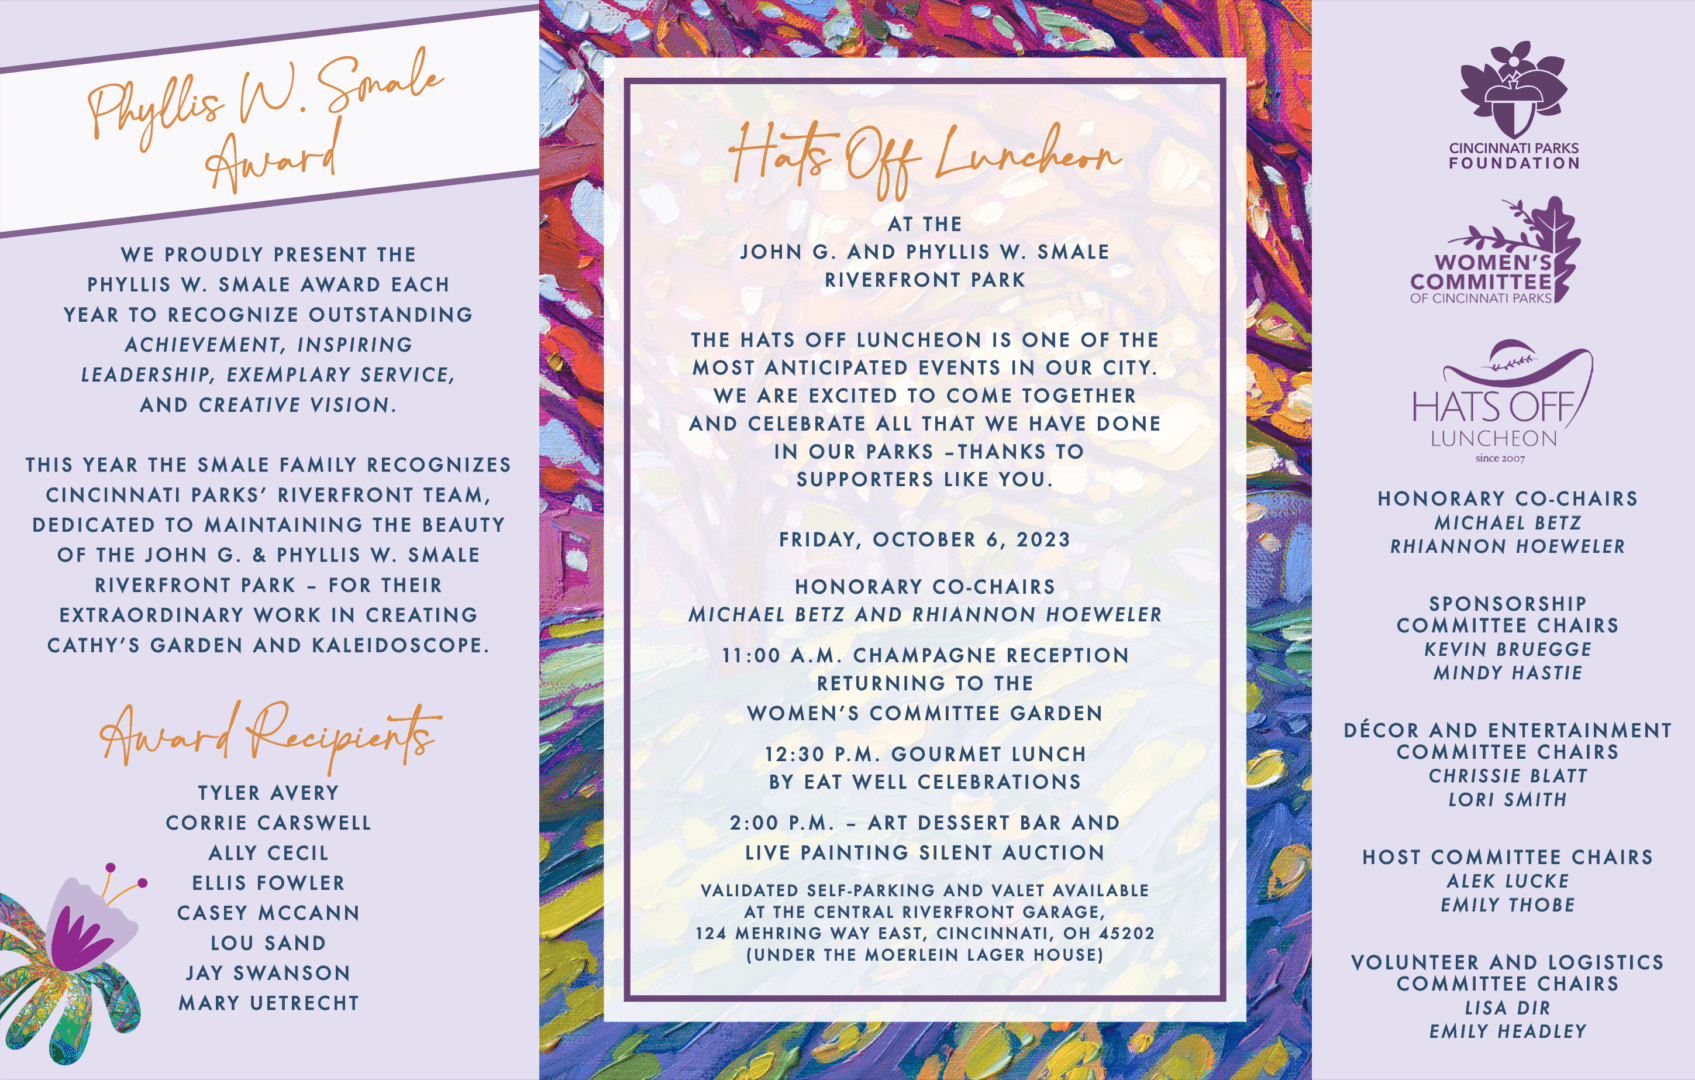 Phyllis W. Smale
Award
WE PROUDLY PRESENT THE
PHYLLIS W. SMALE AWARD EACH
YEAR TO RECOGNIZE OUTSTANDING
ACHIEVEMENT, INSPIRING
LEADERSHIP, EXEMPLARY SERVICE,
AND CREATIVE VISION.
THIS YEAR THE SMALE FAMILY RECOGNIZES
CINCINNATI PARKS’ RIVERFRONT TEAM,
DEDICATED TO MAINTAINING THE BEAUTY
OF THE JOHN G. & PHYLLIS W. SMALE
RIVERFRONT PARK – FOR THEIR
EXTRAORDINARY WORK IN CREATING
CATHY’S GARDEN AND KALEIDOSCOPE.
Award Recipients
TYLER AVERY
CORRIE CARSWELL
ALLY CECIL
ELLIS FOWLER
CASEY MCCANN
LOU SAND
JAY SWANSON
MARY UETRECHT
Hats Off Luncheon
AT THE
JOHN G. AND PHYLLIS W. SMALE
RIVERFRONT PARK
THE HATS OFF LUNCHEON IS ONE OF THE
MOST ANTICIPATED EVENTS IN OUR CITY.
WE ARE EXCITED TO COME TOGETHER
AND CELEBRATE ALL THAT WE HAVE DONE
IN OUR PARKS –THANKS TO
SUPPORTERS LIKE YOU.
FRIDAY, OCTOBER 6, 2023
HONORARY CO-CHAIRS
MICHAEL BETZ AND RHIANNON HOEWELER
11:00 A.M. CHAMPAGNE RECEPTION
RETURNING TO THE
WOMEN’S COMMITTEE GARDEN
12:30 P.M. GOURMET LUNCH
BY EAT WELL CELEBRATIONS
2:00 P.M. – ART DESSERT BAR AND
LIVE PAINTING SILENT AUCTION
VALIDATED SELF-PARKING AND VALET AVAILABLE
AT THE CENTRAL RIVERFRONT GARAGE,
124 MEHRING WAY EAST, CINCINNATI, OH 45202
(UNDER THE MOERLEIN LAGER HOUSE)
CINCINNATI PARKS
FOUNDATION
WOMEN’S
COMMITTEE
OF CINCINNATI PARKS
HATS OFF
LUNCHEON
since 2007
HONORARY CO-CHAIRS
MICHAEL BETZ
RHIANNON HOEWELER
SPONSORSHIP
COMMITTEE CHAIRS
KEVIN BRUEGGE
MINDY HASTIE
DÉCOR AND ENTERTAINMENT
COMMITTEE CHAIRS
CHRISSIE BLATT
LORI SMITH
HOST COMMITTEE CHAIRS
ALEK LUCKE
EMILY THOBE
VOLUNTEER AND LOGISTICS
COMMITTEE CHAIRS
LISA DIR
EMILY HEADLEY